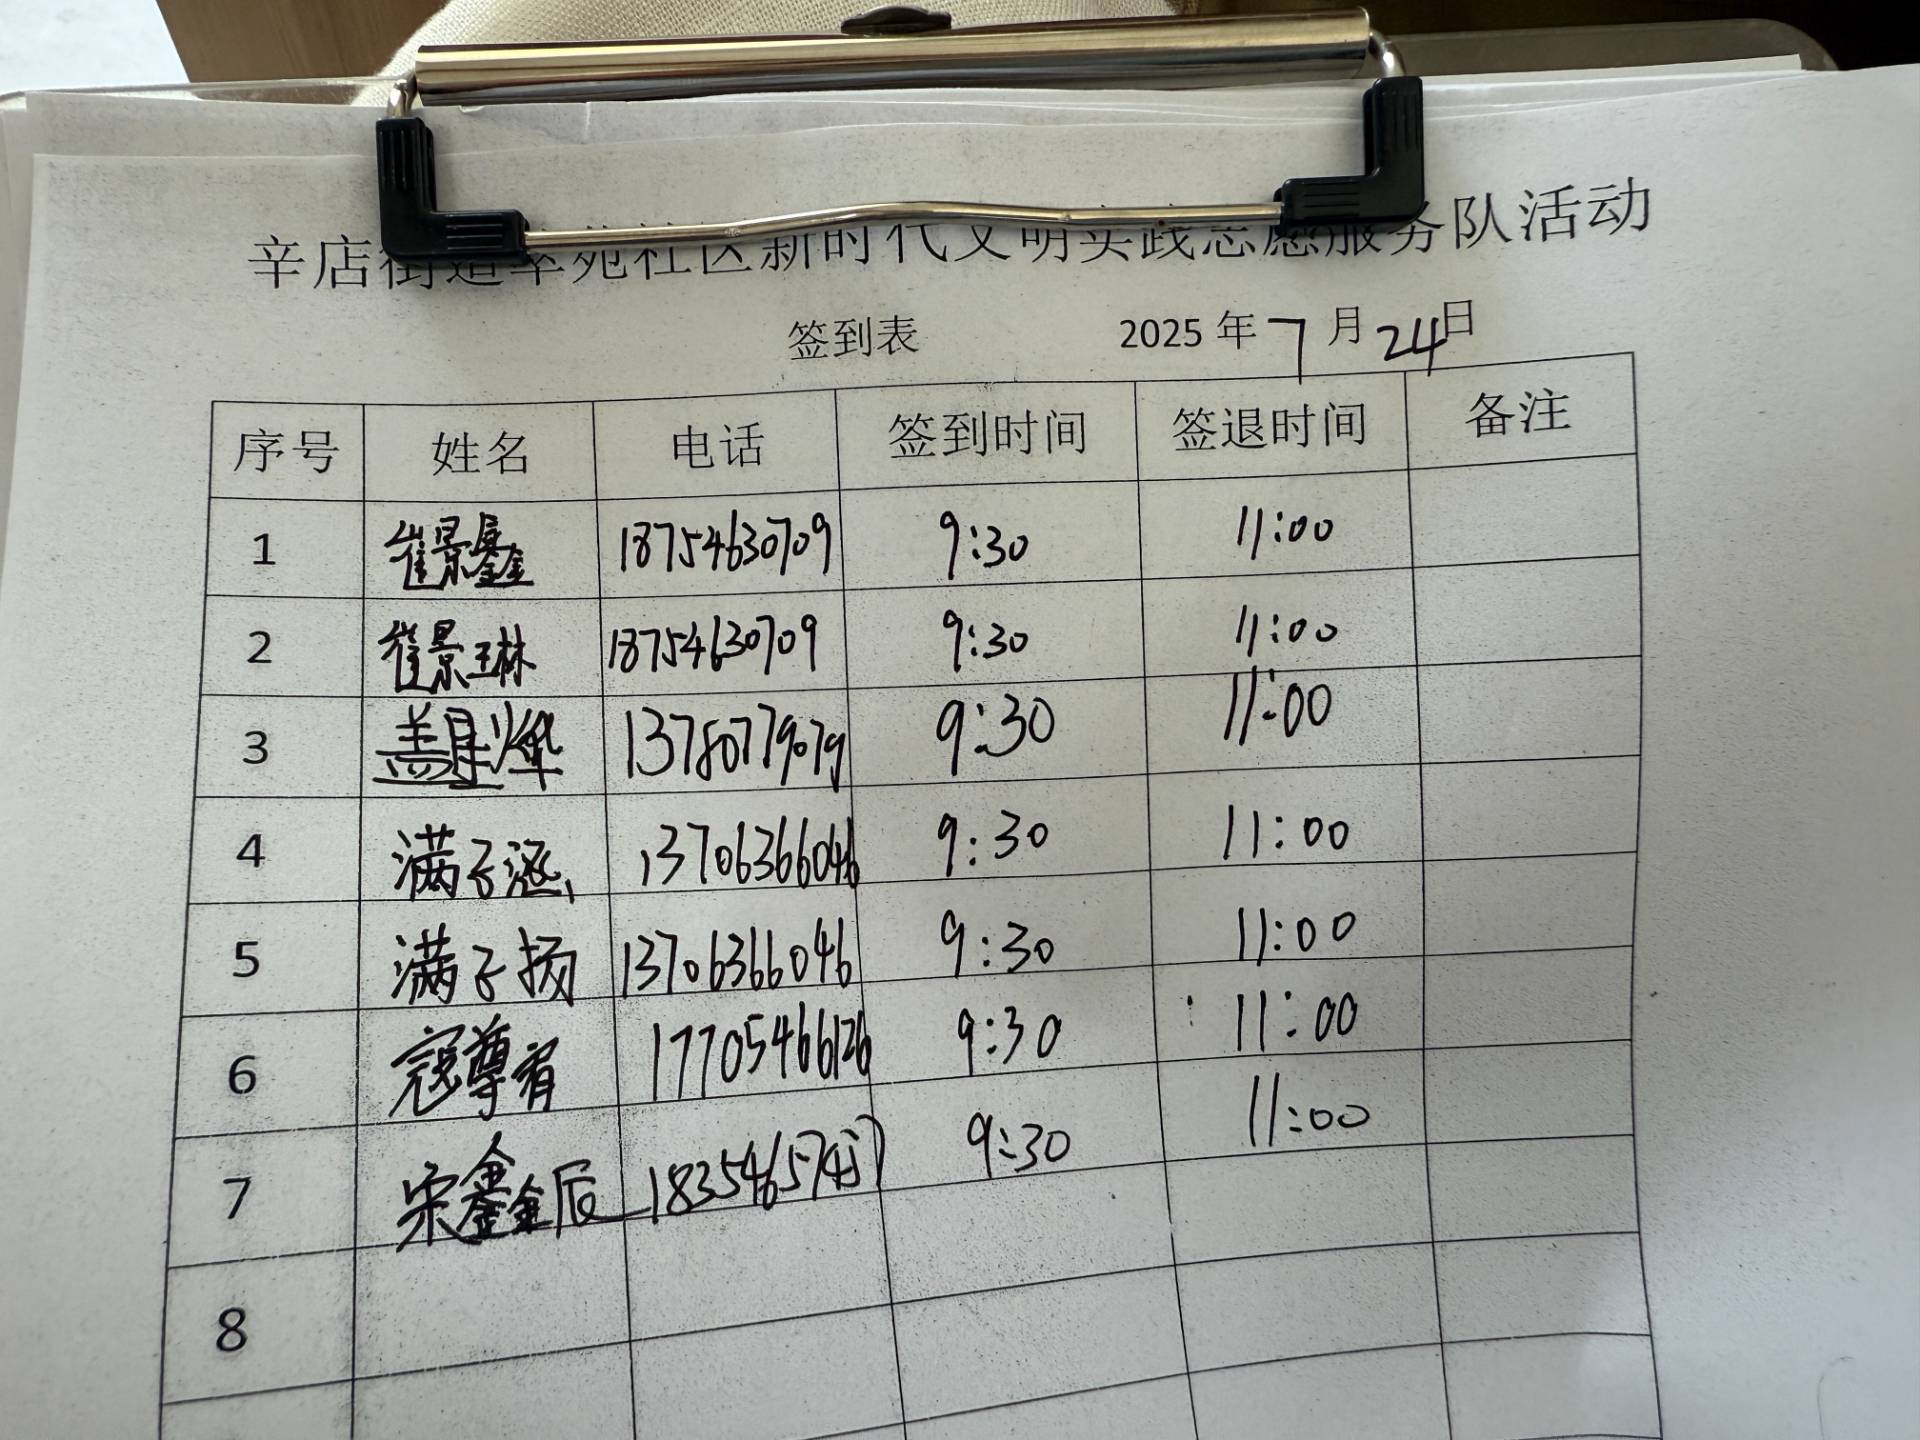 辛店街道萃苑社区新时代文明实践志愿服务队活动
签到表 2025年7月24日
序号 姓名 电话 签到时间 签退时间 备注
1 崔景鑫 18754630709 9:30 11:00
2 崔景琳 18754630709 9:30 11:00
3 盖星烨 13780779079 9:30 11:00
4 满子涵 13706366046 9:30 11:00
5 满子扬 13706366046 9:30 11:00
6 寇尊宥 17705466126 9:30 11:00
7 宋鑫辰 9:30 11:00
8